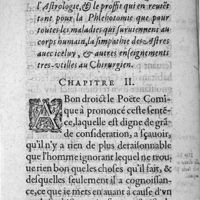 l'Astrologie, & le proffit qui en reuiët
tant pour la Phlebotomie que pour
toutes les maladies qui suruiennent au
corps humain, la simpathie des Astres
auec iceluy, & autres enseignements
tres-vtiles au Chirurgien.
CHAPITRE II.
A Bon droict le Poëte Comi-
que a prononcé ceste senté-
ce, laquelle est digne de grã-
de consideration, a sçauoir,
qu'il n'y a rien de plus deraisonnable
que l'homme ignorant lequel ne trou-
ue rien bon que les choses qu'il fait, &
desquelles seulement il a cognoissan-
ce, ce que ie mets en auant à cause d'vn